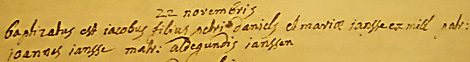 22 novembris
baptizatus est iacobus filius petri daniels et mariæ iansse ex mill patr:
ioannes iansse matr: aldegundis ianssen